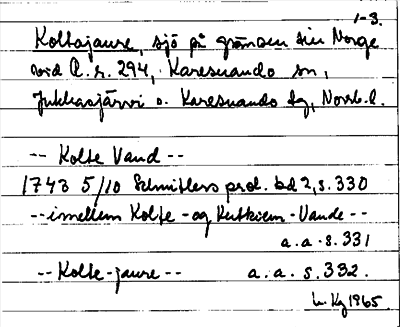 1-3.
Koltajaure, sjö på gränsen till Norge
vid R.r. 294, Karesuando sn,
Jukkasjärvi o. Karesuando tg, Norrb.l.
-- Kolte Vand --
1743 5/10 Schnitlers prot. bd 2, s. 330
-- imellem Kolte - og Kutkiem - Vande --
a.a. s. 331
-- Kolte-jaure -- a.a. s. 332.
1965